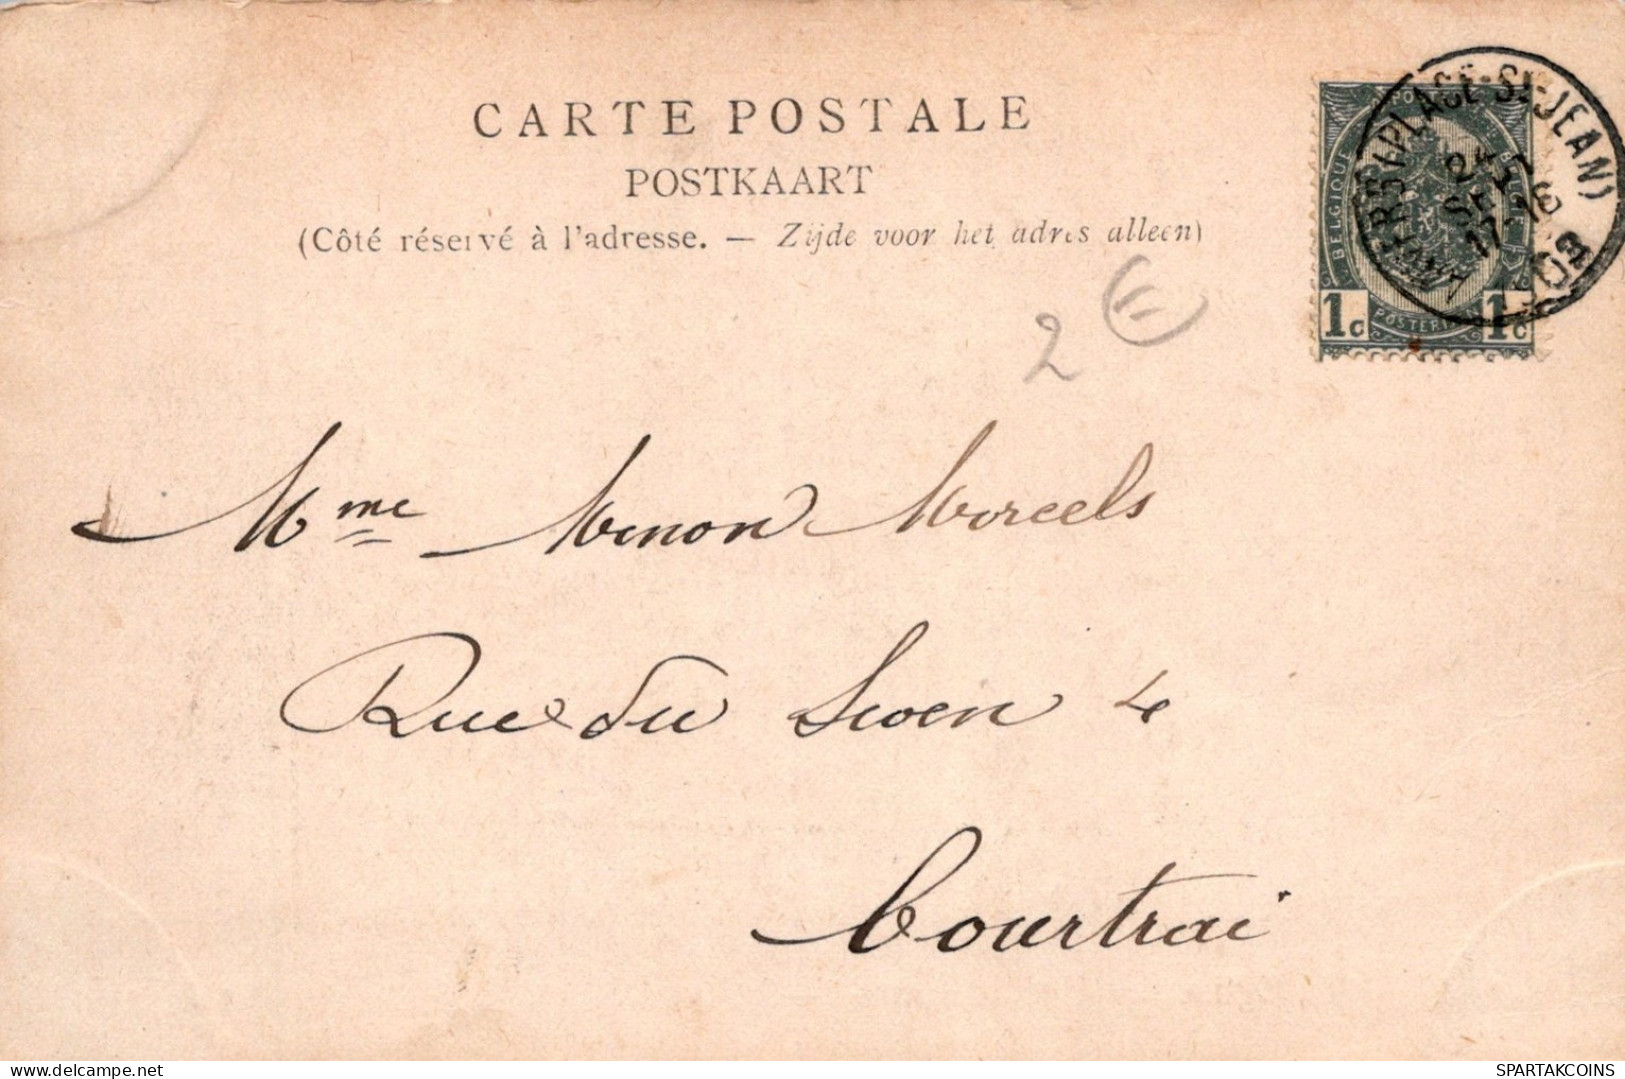 CARTE POSTALE
POSTKAART
(Côté réservé à l'adresse. — Zijde voor het adres alleen)
ANVERS (PLACE-ST-JEAN)
SEPT
17-18
BELGIQUE
BELGIË
1c
1c
2 €
Mme Menon Morceels
Rue du 4
Courtrai
delcampe.net
SPARTAKCOINS